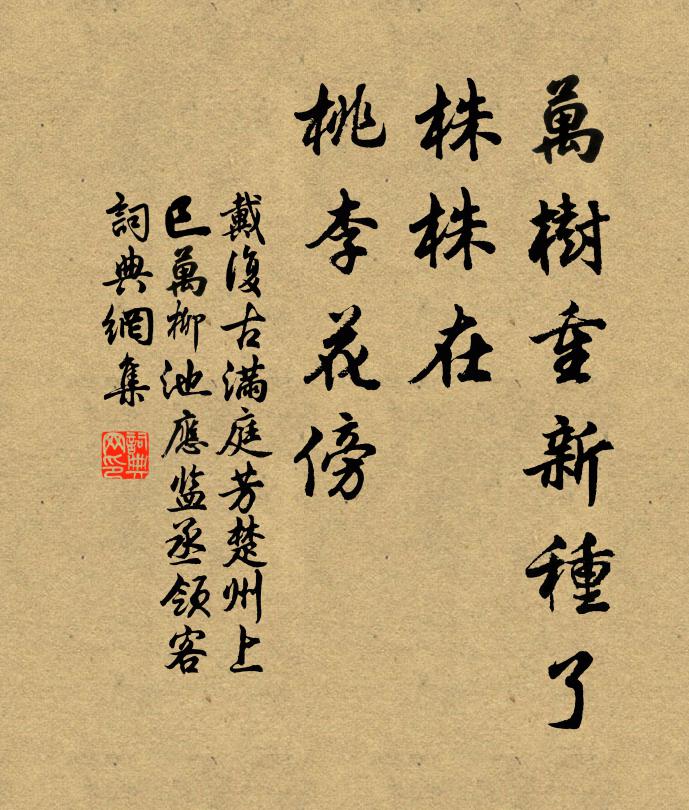 萬樹重新種了
株株在
桃李花傍
戴復古滿庭芳楚州上
巳萬柳池應监丞領客
詞典網集
詞典网印